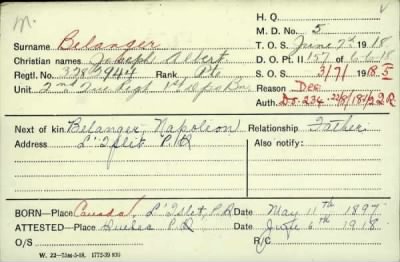 H. Q.
M. D. No. 5
Surname Belanger T. O. S. June 7th 1918
Christian names Joseph Albert D. O. Pt. II 157 of 6-6-18
Regtl. No. 3282944 Rank Pte S. O. S. 3/7/1918. 5
Unit 2nd Que Regt 1st Depo Bn Reason Des
Auth. Do. 234
Next of kin Belanger, Napoleon Relationship Father
Address L'Islet P.Q Also notify:
BORN—Place Canada, L'Islet, P.Q Date May 11th 1897
ATTESTED—Place Quebec P.Q Date June 6th 1918.
O/S R/C
W. 22—75M-5-18. 1772-39 839